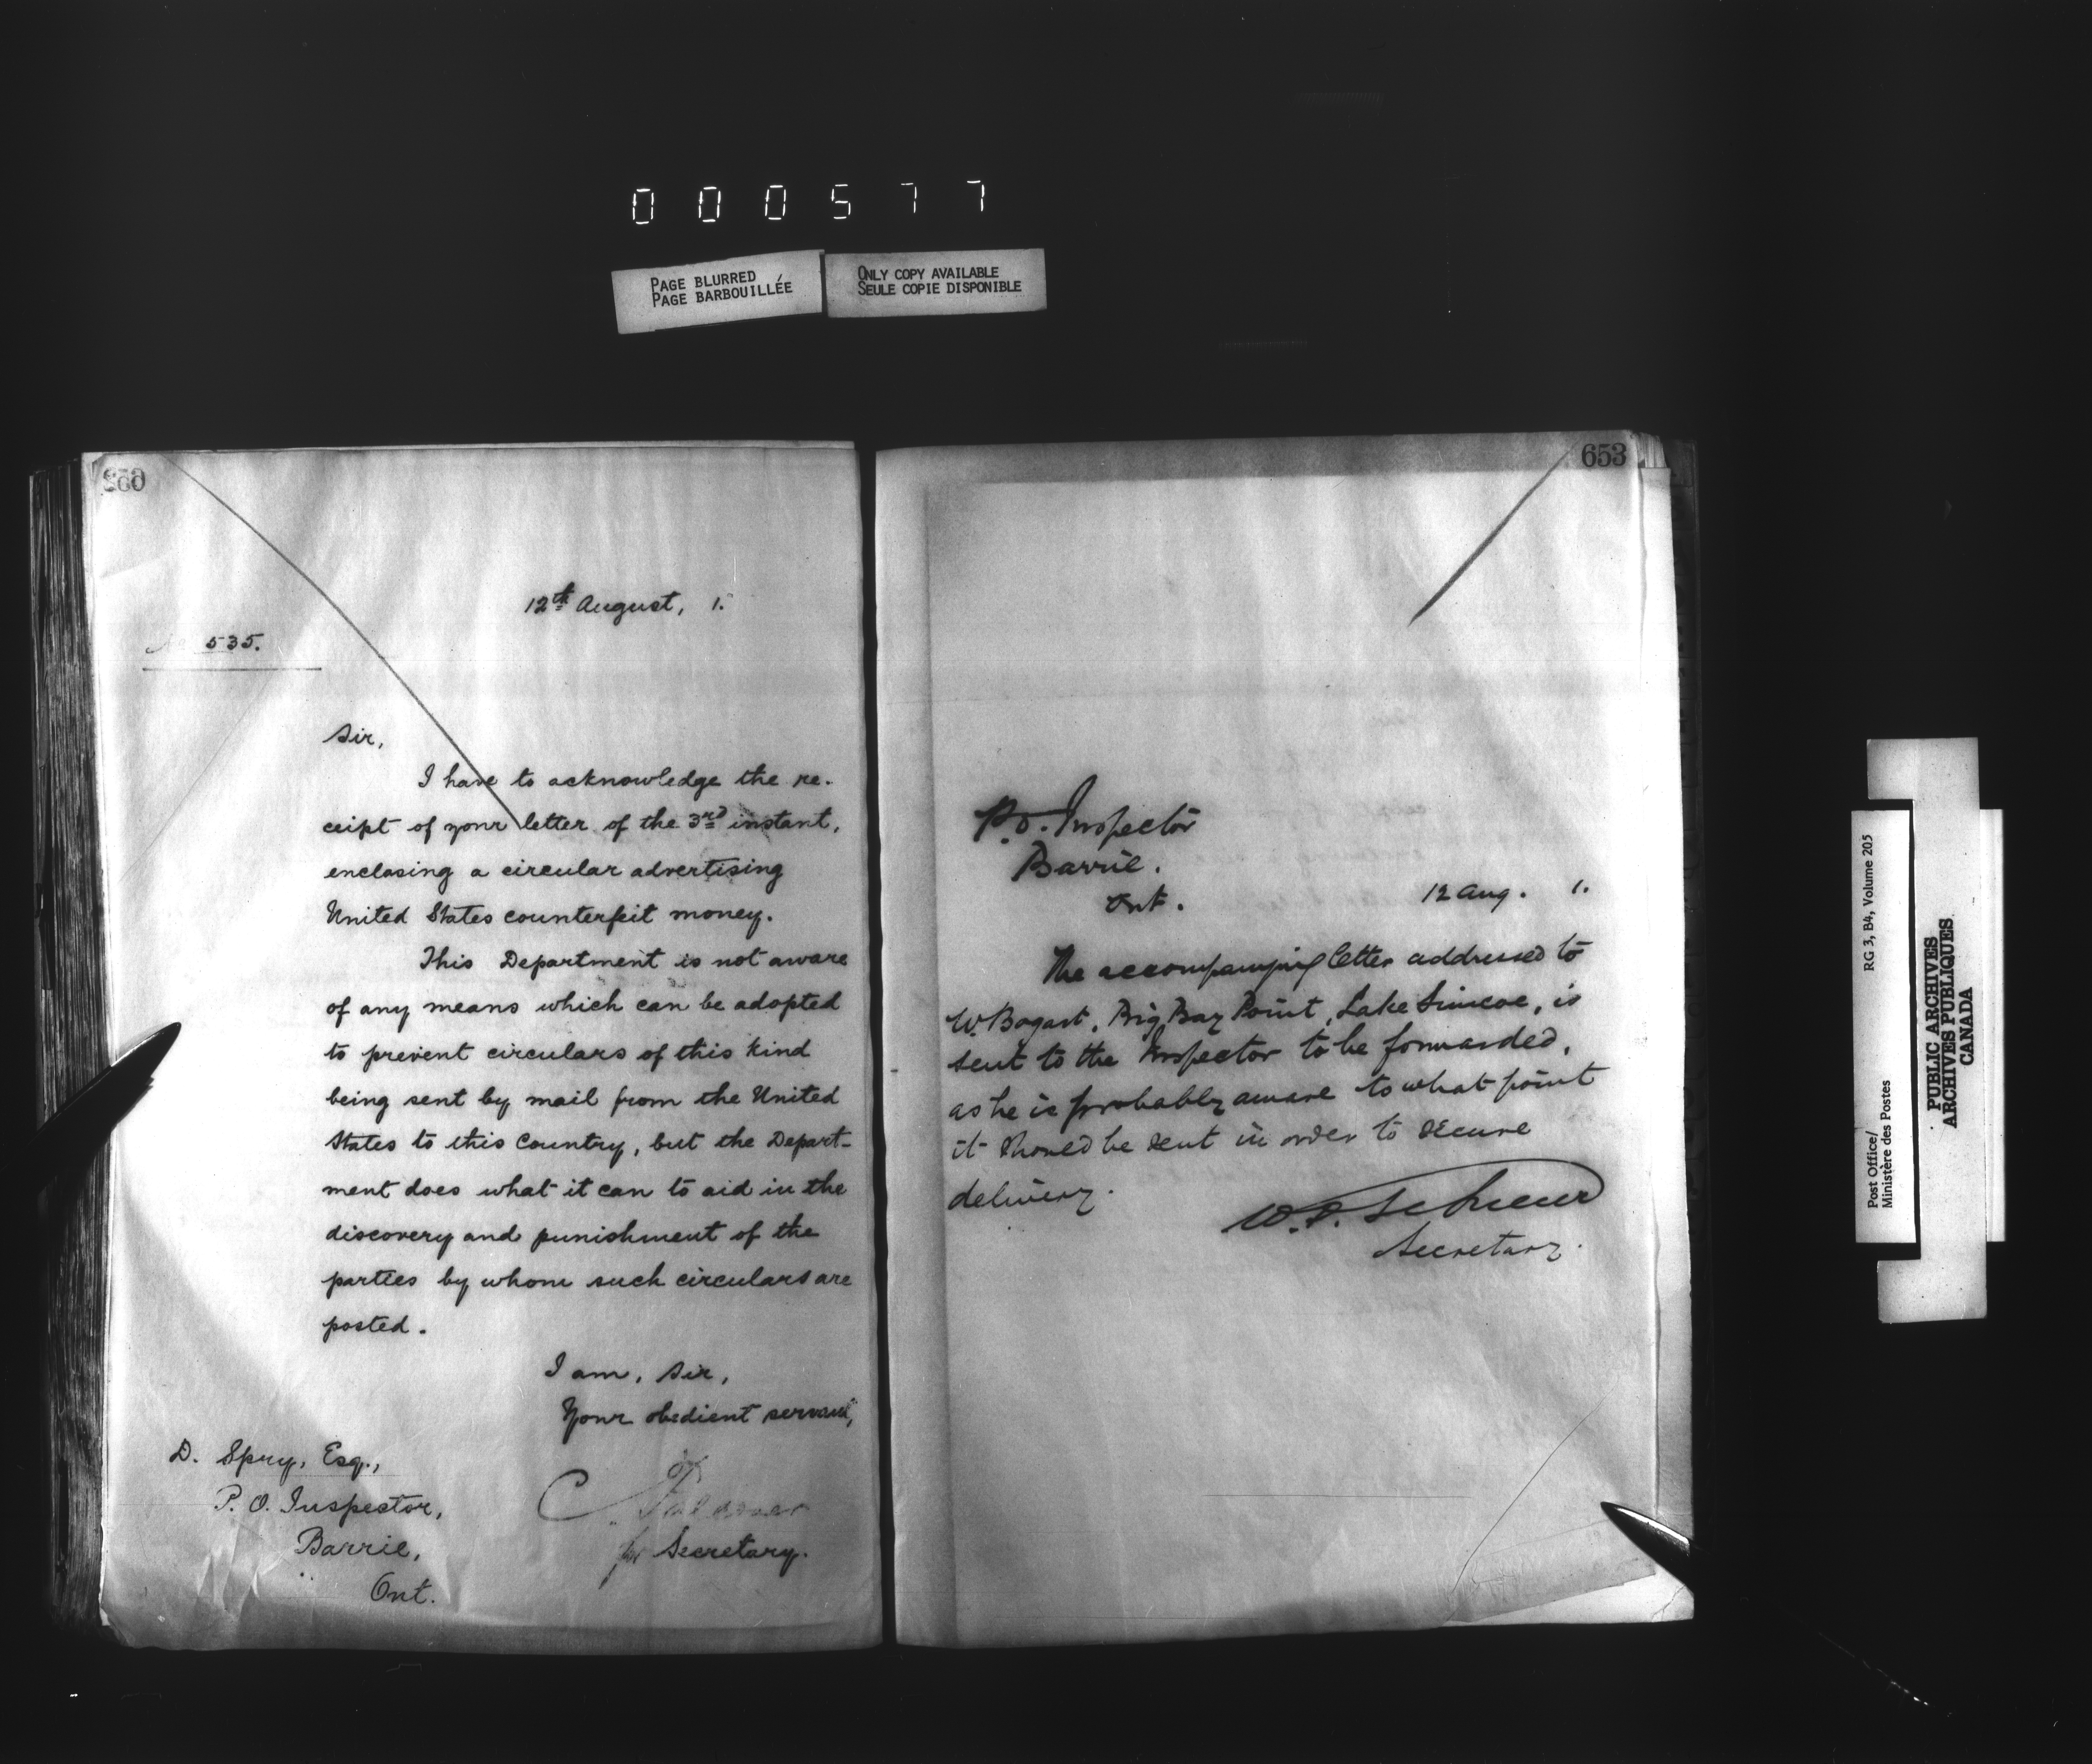 000577
PAGE BLURRED
PAGE BARBOUILLÉE
ONLY COPY AVAILABLE
SEULE COPIE DISPONIBLE
12th August, 1.
535.
Sir,
I have to acknowledge the re-
ceipt of your letter of the 3rd instant,
enclosing a circular advertising
United States counterfeit money.
This Department is not aware
of any means which can be adopted
to prevent circulars of this kind
being sent by mail from the United
States to this Country, but the Depart-
ment does what it can to aid in the
discovery and punishment of the
parties by whom such circulars are
posted.
I am, Sir,
Your obedient servant,
for Secretary.
D. Spry, Esq.,
P. O. Inspector,
Barrie,
Ont.
653
P.O. Inspector
Barrie.
Ont.
12 Aug. 1.
The accompanying letter addressed to
W. Bogart, Big Bay Point, Lake Simcoe, is
sent to the Inspector to be forwarded,
as he is probably aware to what point
it should be sent in order to secure
delivery.
Secretary.
Post Office/ RG 3, B4, Volume 205
Ministère des Postes
PUBLIC ARCHIVES
ARCHIVES PUBLIQUES
CANADA